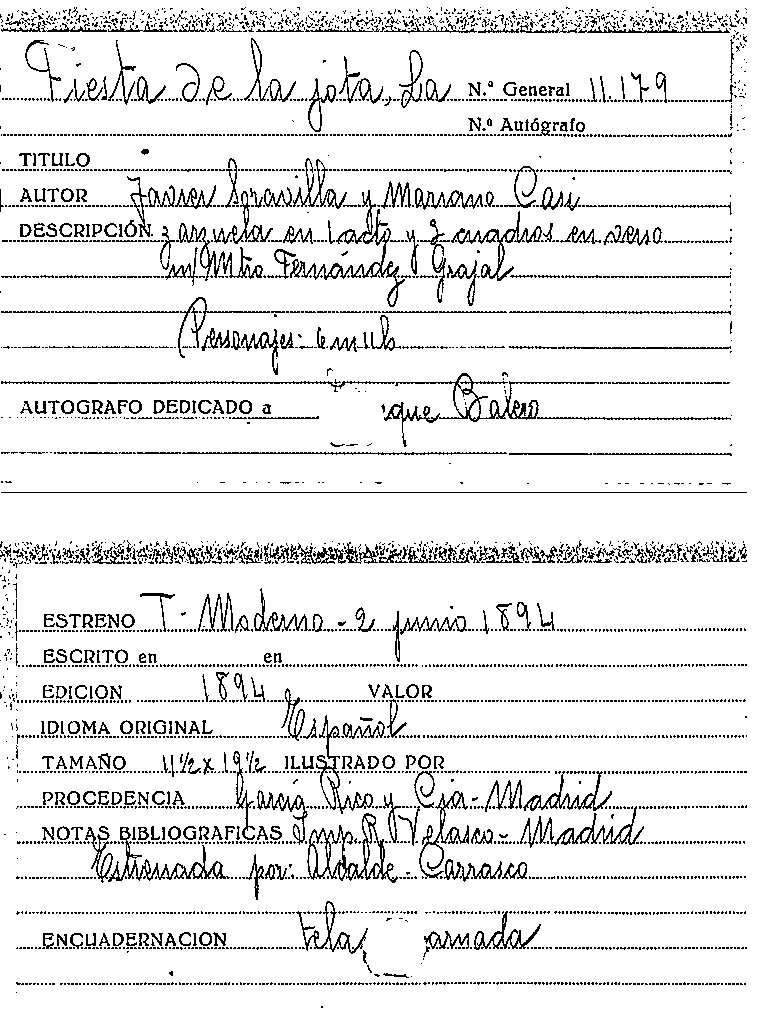 Fiesta de la jota, La N.º General 11.179
N.º Autógrafo
TITULO
AUTOR Javier Soravilla y Mariano Casi
DESCRIPCIÓN zarzuela en 1 acto y 2 cuadros en verso
m/ Mtro Fernández Grajal
Personajes: 6 m 11 h
AUTOGRAFO DEDICADO a ique Balero
ESTRENO T. Moderno - 2 junio 1894
ESCRITO en en
EDICION 1894 VALOR
IDIOMA ORIGINAL Español
TAMAÑO 11½ x 19½ ILUSTRADO POR
PROCEDENCIA García Rico y Cía - Madrid
NOTAS BIBLIOGRAFICAS Imp. R. Velasco - Madrid
Estrenada por: Aldalde - Carrasco
ENCUADERNACION tela arnada